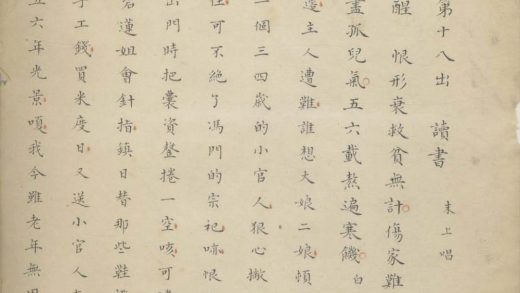 第十八出 讀書 末上唱
醒 恨形衰救貧無計傷家難
盡孤兒氣五六載熬遍寒饑 白
主人遭難誰想大娘二娘頓
一個三四歲的小官人狠心撇
可不絕了馮門的宗祀唷恨
出門時把囊資罄捲一空咳可
碧蓮姐會針指鎮日替那些鞋
手工錢買米度日又送小官人
五六年光景嗄我今雖老年無